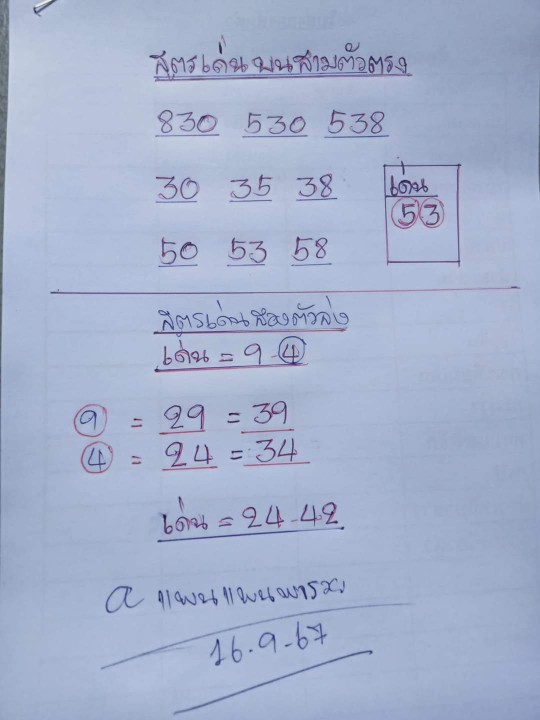 สูตรเด่น บนสามตัวตรง
830 530 538
30 35 38
เด่น
5 3
50 53 58
สูตรเด่นสองตัวล่าง
เด่น = 9-4
9 = 29 = 39
4 = 24 = 34
เด่น = 24-42
16.9-67